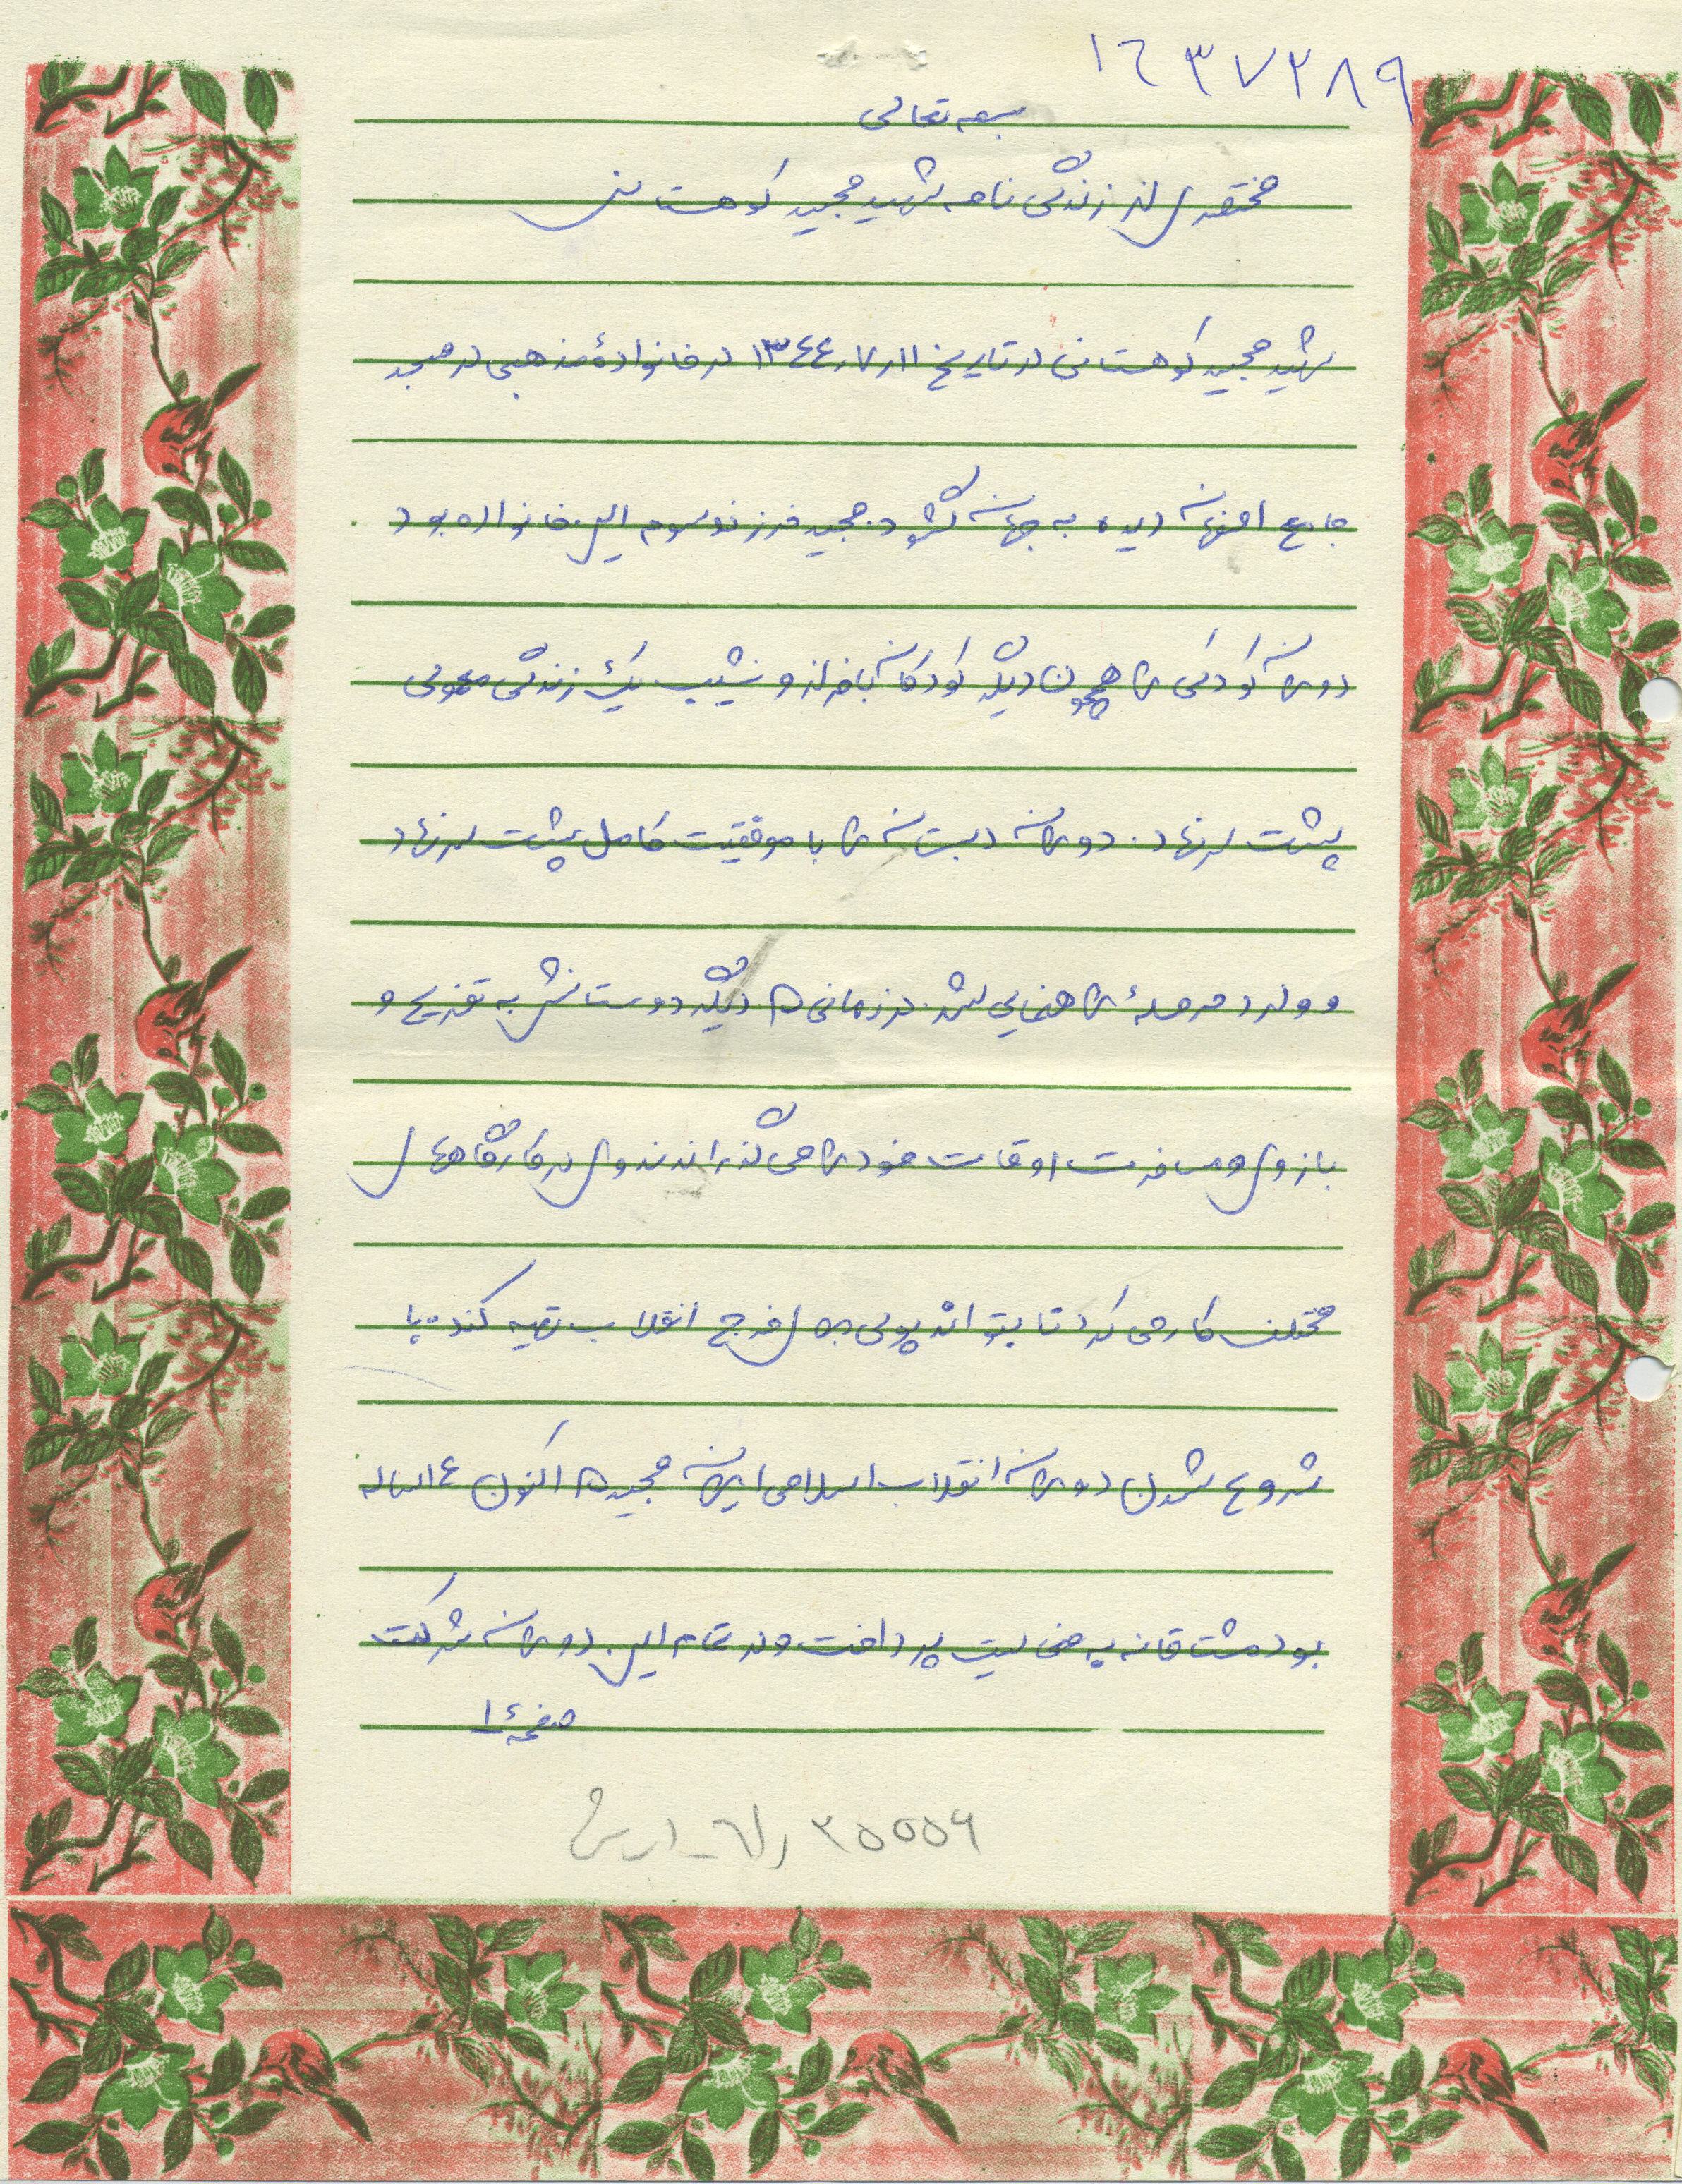 ۱۶۳۷۲۸۹
بسمه تعالی
مختصری از زندگی نامه شهید مجید کوهستانی
شهید مجید کوهستانی در تاریخ ۱۳۴۴٫۷٫۱۱ در خانوادهٔ مذهبی در مسجد
جامع اصفهان دیده به جهان گشود. مجید فرزند سوم این خانواده بود.
دوران کودکی را همچون دیگر کودکان با فراز و نشیب یک زندگی معمولی
پشت سر نهاد. دوران دبستان را با موفقیت کامل پشت سر نهاد
و وارد مرحلهٔ راهنمایی شد. در زمانی که دیگر دوستانش به تفریح و
بازی و مسافرت اوقات خود را می گذراندند وی در کارگاههای
مختلف کار می کرد تا بتواند پولی برای خرج انقلاب تهیه کند. با
شروع شدن دوران انقلاب اسلامی ایران مجید که اکنون ۱۴ ساله
بود مشتاقانه به فعالیت پرداخت و در تمام این دوران شرکت
صفحهٔ ۱